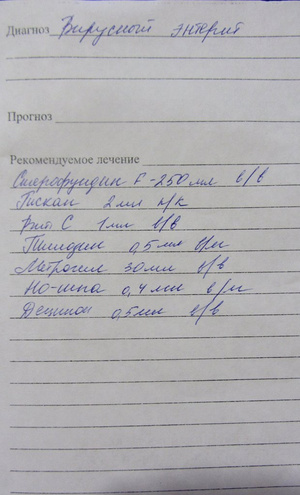 Диагноз Вирусный энтерит
Прогноз
Рекомендуемое лечение
Стерофундин F - 250 мл в/в
Гискан 2 мл п/к
Вит С 1 мл в/в
0,5 мл в/м
Метрогил 30 мл в/в
Но-шпа 0,4 мл в/м
Децинон 0,5 мл в/в